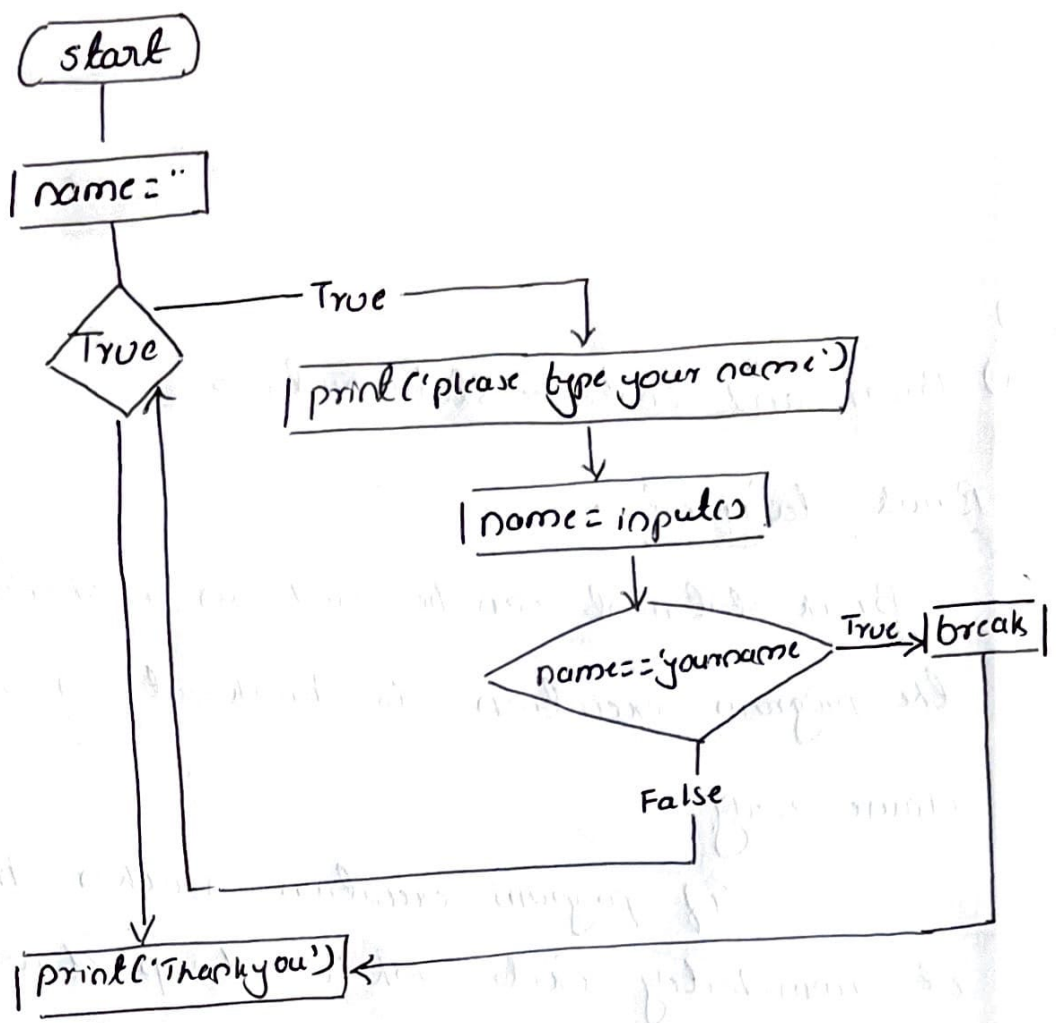 start
name=''
True
True
print('please type your name')
name=input()
name=='yourname
True
break
False
print('Thankyou')